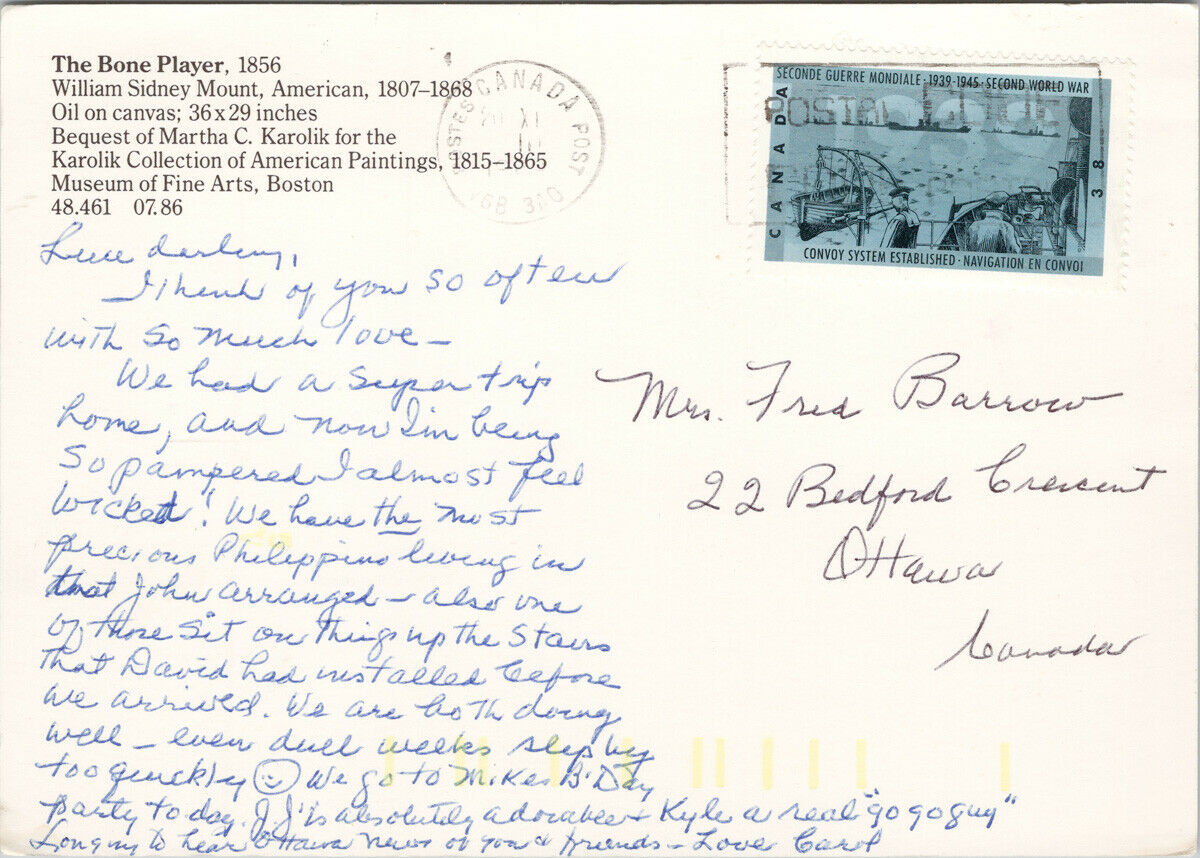 The Bone Player, 1856
William Sidney Mount, American, 1807–1868
Oil on canvas; 36 x 29 inches
Bequest of Martha C. Karolik for the
Karolik Collection of American Paintings, 1815–1865
Museum of Fine Arts, Boston
48.461 07.86
CANADA POST
POSTES
XI
POSTAL CODE
SECONDE GUERRE MONDIALE · 1939-1945 · SECOND WORLD WAR
CANADA
38
CONVOY SYSTEM ESTABLISHED · NAVIGATION EN CONVOI
darling,
I think of you so often
with so much love –
We had a super trip
home, and now I'm being
so pampered I almost feel
wicked! We have the most
precious Philippino living in
that John arranged – also one
of those sit on things up the stairs
that David had installed before
we arrived. We are both doing
well – even dull weeks slip by
too quickly ☺ We go to Mikes B'Day
party today. J.J. is absolutely adorable + Kyle a real "go go guy"
Longing to hear Ottawa news of you & friends – Love Carol
Mrs. Fred Barrow
22 Bedford Crescent
Ottawa
Canada